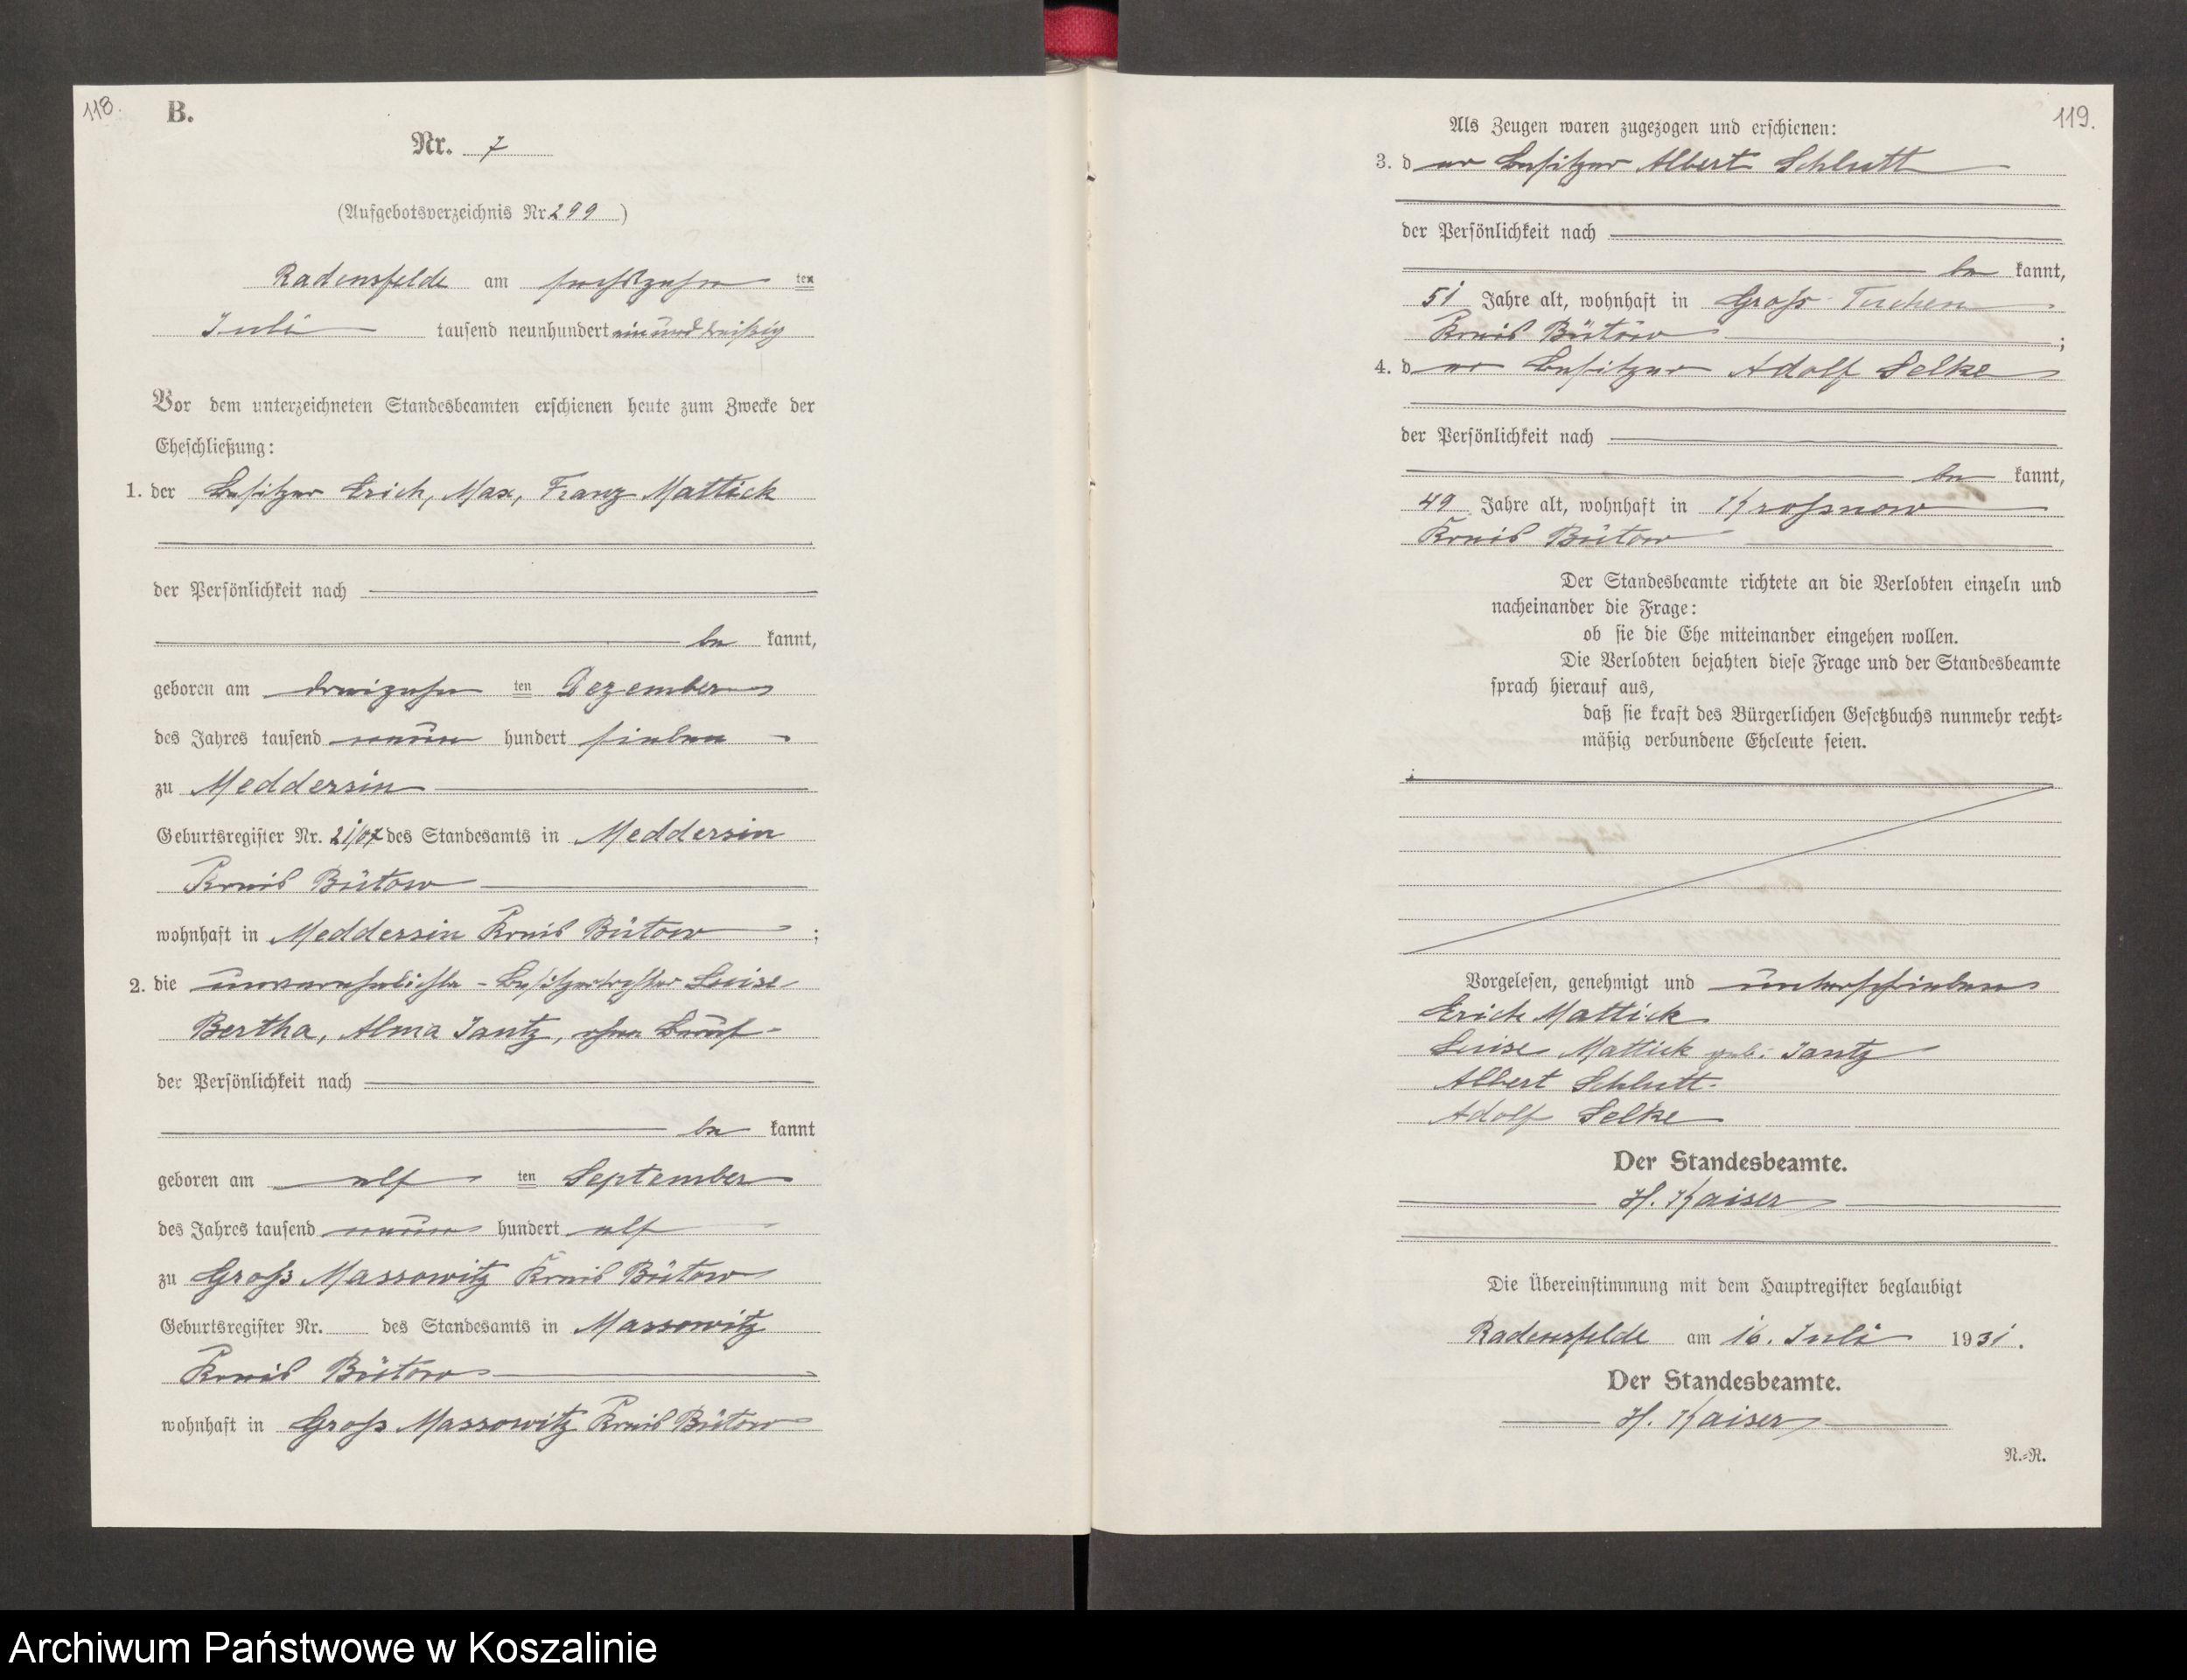 118.
B.
Nr. 7
(Aufgebotsverzeichnis Nr. 299)
Radensfelde am sechszehn ten
Juli tausend neunhundert einunddreißig
Vor dem unterzeichneten Standesbeamten erschienen heute zum Zwecke der
Eheschließung:
1. der Besitzer Erich, Max, Franz Mattick
der Persönlichkeit nach
be kannt,
geboren am dreizehn ten Dezember
des Jahres tausend neun hundert sieben
zu Meddersin
Geburtsregister Nr. 21/07 des Standesamts in Meddersin
Kreis Bütow
wohnhaft in Meddersin Kreis Bütow ;
2. die unverehelichte - Besitzertochter Luise
Bertha, Alma Jantz, ohne Beruf -
der Persönlichkeit nach
be kannt
geboren am elf ten September
des Jahres tausend neun hundert elf
zu Groß Massowitz Kreis Bütow
Geburtsregister Nr. des Standesamts in Massowitz
Kreis Bütow
wohnhaft in Groß Massowitz Kreis Bütow
119.
Als Zeugen waren zugezogen und erschienen:
3. d er Besitzer Albert Schlutt
der Persönlichkeit nach
be kannt,
51 Jahre alt, wohnhaft in Groß Tuchen
Kreis Bütow ;
4. d er Besitzer Adolf Selke
der Persönlichkeit nach
be kannt,
49 Jahre alt, wohnhaft in Kroßnow
Kreis Bütow
Der Standesbeamte richtete an die Verlobten einzeln und
nacheinander die Frage:
ob sie die Ehe miteinander eingehen wollen.
Die Verlobten bejahten diese Frage und der Standesbeamte
sprach hierauf aus,
daß sie kraft des Bürgerlichen Gesetzbuchs nunmehr recht-
mäßig verbundene Eheleute seien.
Vorgelesen, genehmigt und unterschrieben
Erich Mattick
Luise Mattick geb. Jantz
Albert Schlutt.
Adolf Selke
Der Standesbeamte.
H. Kaiser
Die Übereinstimmung mit dem Hauptregister beglaubigt
Radensfelde am 16. Juli 1931.
Der Standesbeamte.
H. Kaiser
N.-R.
Archiwum Państwowe w Koszalinie